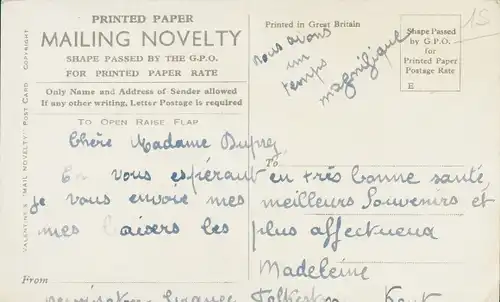 PRINTED PAPER
MAILING NOVELTY
SHAPE PASSED BY THE G.P.O.
FOR PRINTED PAPER RATE
Only Name and Address of Sender allowed
If any other writing, Letter Postage is required
TO OPEN RAISE FLAP
VALENTINE'S "MAIL NOVELTY" POST CARD COPYRIGHT
Printed in Great Britain
Shape Passed
by G.P.O.
for Printed Paper
Postage Rate
E
15
nous avons
un
temps
magnifique
Chère Madame Duprey
To
En vous espérant en très bonne santé,
je vous envoie mes meilleurs souvenirs et
mes baisers les plus affectueux
Madeleine
From
Folkestone Kent